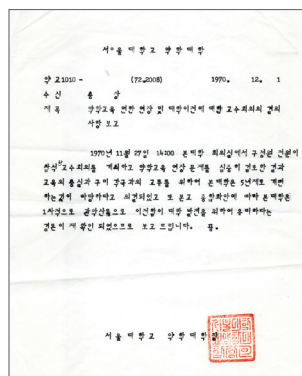 서울대학교 약학대학
약교1010 - (72.2008) 1970. 12. 1
수 신 총 장
제 목 약학교육 연한 연장 및 대학이전에 대한 교수회의의 결의
사항 보고
1970년 11월 27일 14:00 본대학 회의실에서 구성원 전원이
참석 교수회의를 개최하고 약학교육 연장 문제를 심중히 검토한 결과
교육의 충실과 구미 각국과의 교류를 위하여 본대학은 5년제로 개편
하는것이 바람직하다고 의결되었고 또 본교 종합화안에 따라 본대학은
1차적으로 관악산으로 이전함이 대학 발전을 위하여 좋다하는
결론이 재 확인 되었으므로 보고 드립니다. 끝.
서울대학교 약학대학장